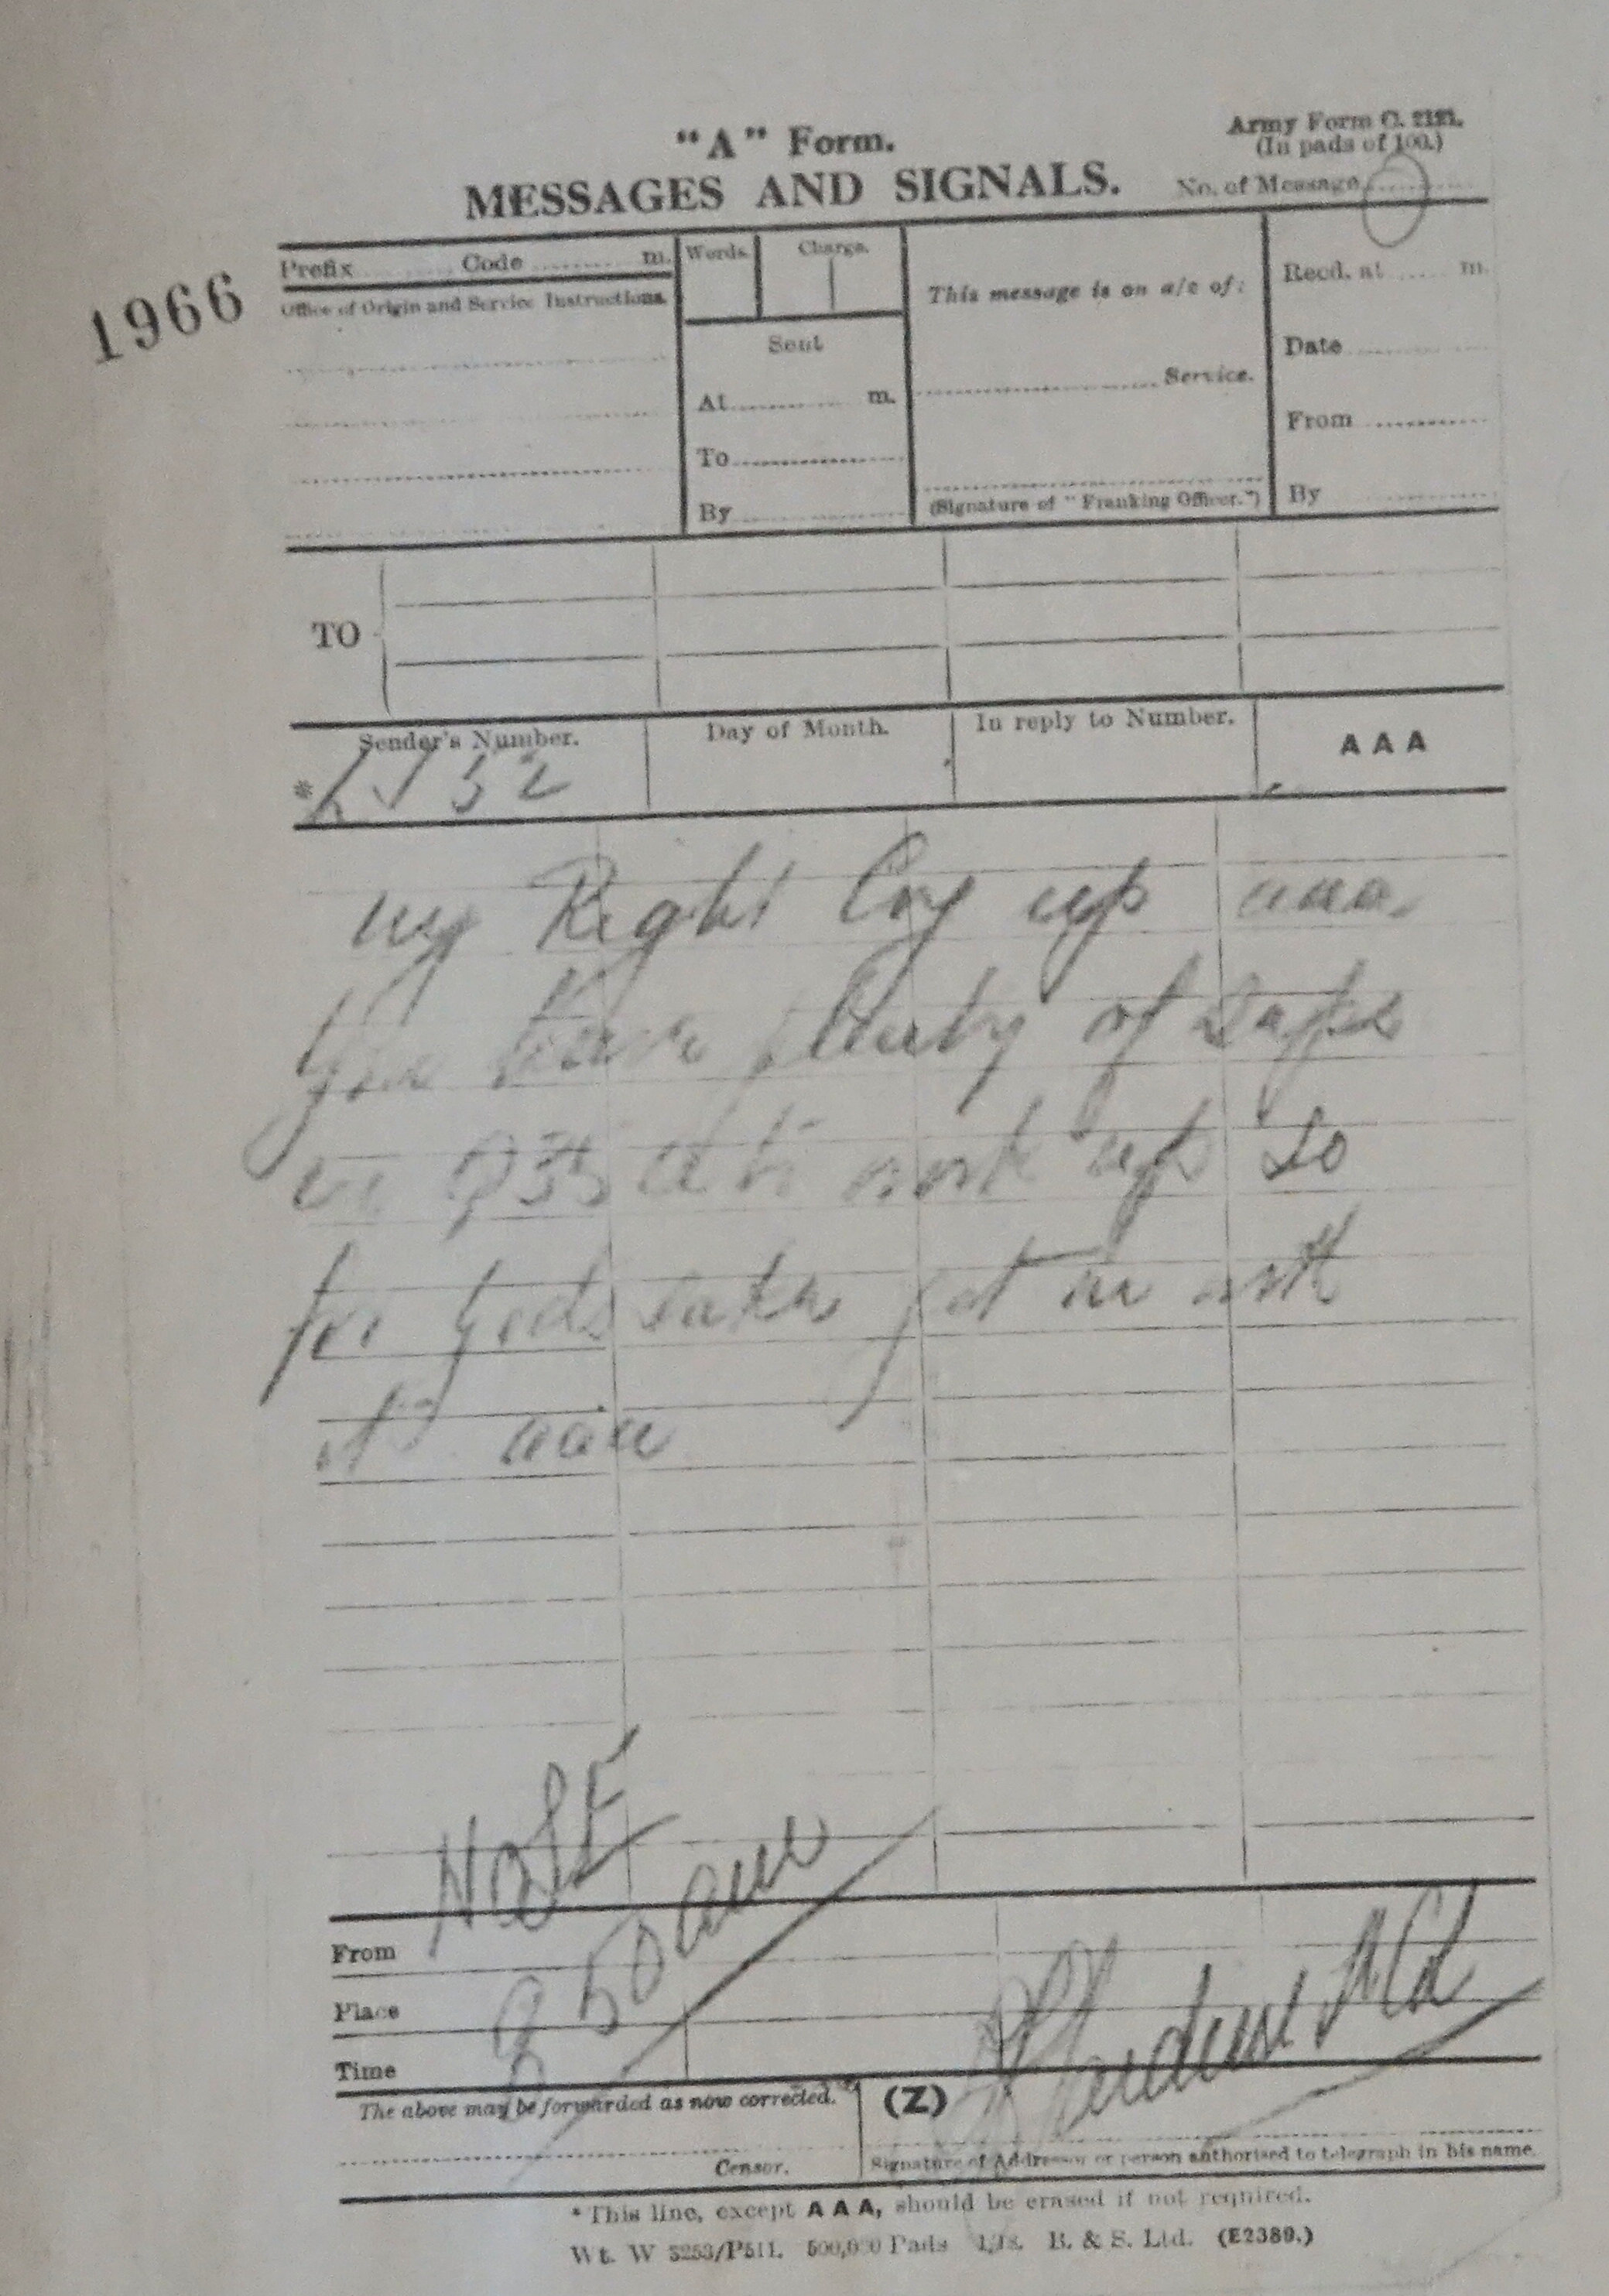 "A" Form.
Army Form C. 2121.
(In pads of 100.)
MESSAGES AND SIGNALS.
No. of Message
1966
Prefix Code m.
Words. Charge.
This message is on a/c of:
Recd. at m.
Office of Origin and Service Instructions.
Sent
Date
Service.
At m.
From
To
(Signature of "Franking Officer.")
By
By
TO
Sender's Number.
Day of Month.
In reply to Number.
AAA
* 52
my Right Coy up aaa
You have plenty of
up so
for gods sake get on with
it aaa
NOSE
8 50 am
From
Place
Time
The above may be forwarded as now corrected.
(Z)
Censor.
Signature of Addressor or person authorised to telegraph in his name.
* This line, except AAA, should be erased if not required.
Wt. W 5253/P511. 500,000 Pads 1/18. B. & S. Ltd. (E2389.)